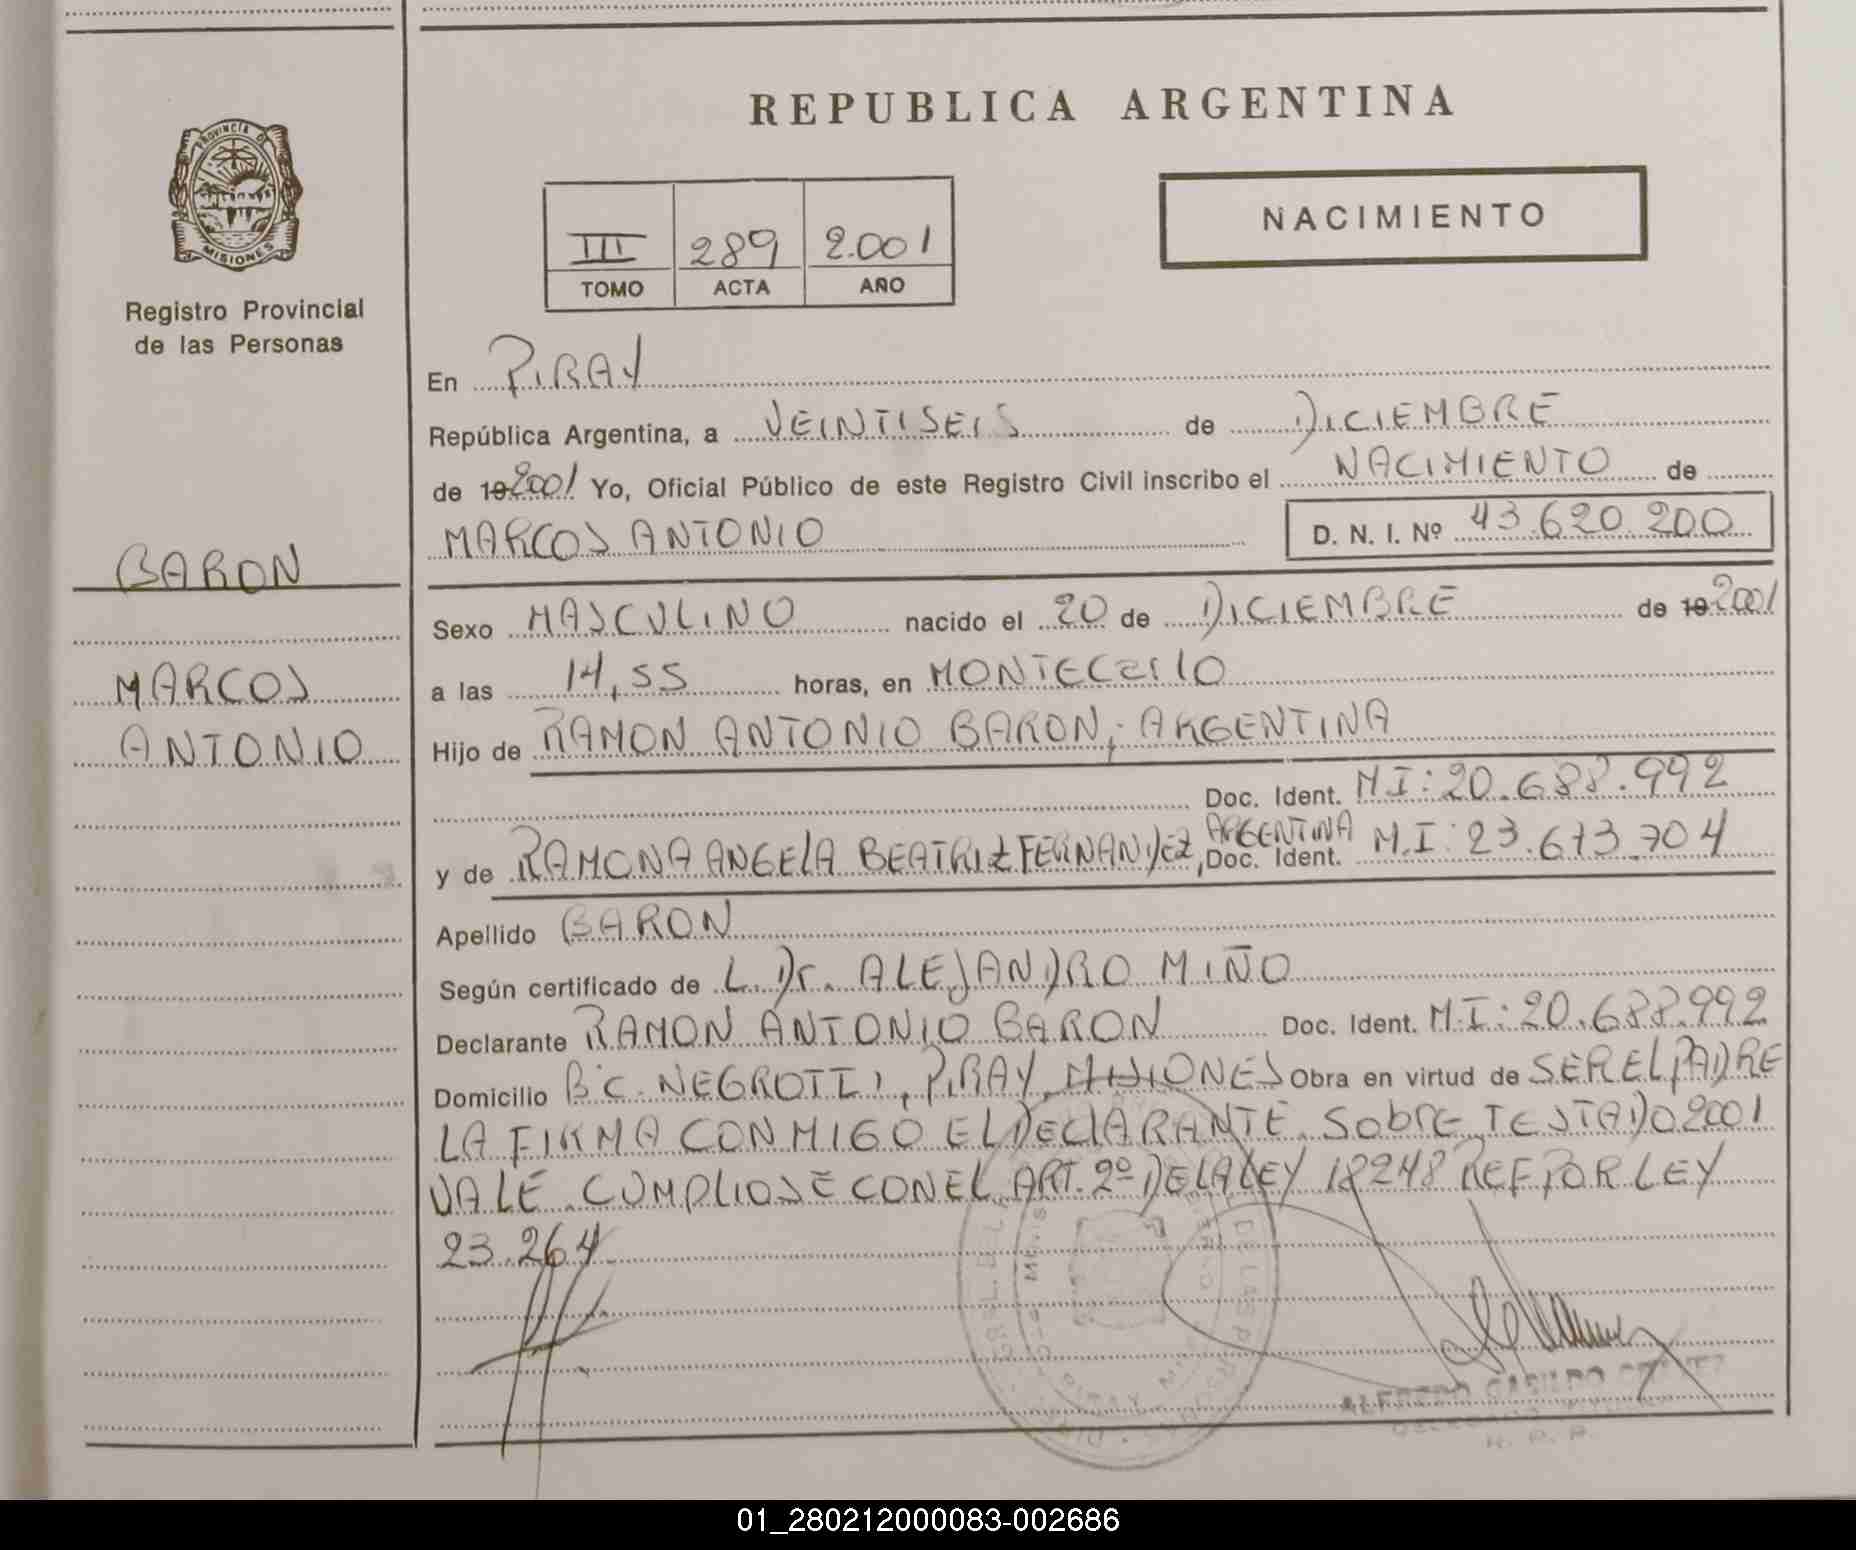 PROVINCIA DE
MISIONES
Registro Provincial
de las Personas
BARON
MARCOS
ANTONIO
REPUBLICA ARGENTINA
III 289 2.001
TOMO ACTA AÑO
NACIMIENTO
En PIRAY
República Argentina, a VEINTISEIS de DICIEMBRE
de 19 2001 Yo, Oficial Público de este Registro Civil inscribo el NACIMIENTO de
MARCOS ANTONIO D. N. I. Nº 43.620.200
Sexo MASCULINO nacido el 20 de DICIEMBRE de 19 2001
a las 14,55 horas, en MONTECarlO
Hijo de RAMON ANTONIO BARON, ARGENTINA
Doc. Ident. M I: 20.688.992
y de RAMONA ANGELA BEATRIZ FERNANDEZ, ARGENTINA Doc. Ident. M.I: 23.673.704
Apellido BARON
Según certificado de L. Dr. ALEJANDRO MIÑO
Declarante RAMON ANTONIO BARON Doc. Ident. M.I: 20.688.992
Domicilio Bº C. NEGROTTI, PIRAY, MISIONES Obra en virtud de SER EL PADRE
LA FIRMA CONMIGO EL DEClARANTE. SobrE TESTADO 2001
VALE. CUMPLIOSE CON EL ART. 2º DE LA LEY 18248 REF POR LEY
23.264
ALFREDO CASILDO
R. P. P.
01_280212000083-002686